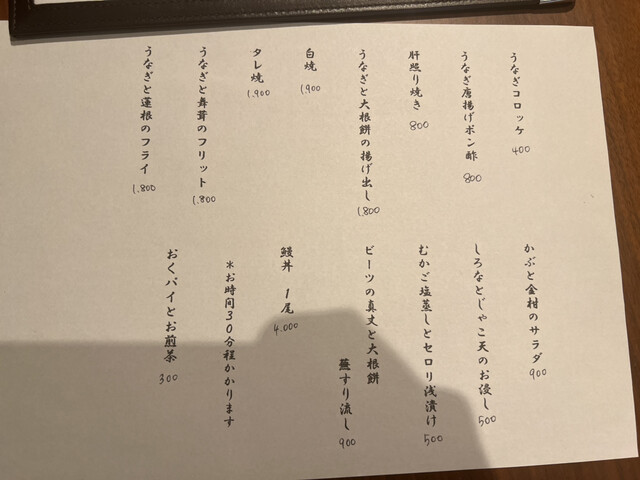 うなぎコロッケ
400
うなぎ唐揚げポン酢
800
肝照り焼き
800
うなぎと大根餅の揚げ出し
1.800
白焼
1.900
タレ焼
1.900
うなぎと舞茸のフリット
1.800
うなぎと蓮根のフライ
1.800
かぶと金柑のサラダ
900
しろなとじゃこ天のお浸し
500
むかご塩蒸しとセロリ浅漬け
500
ビーツの真丈と大根餅
蕪すり流し
900
鰻丼 1尾
4.000
＊お時間30分程かかります
おくパイとお煎茶
300